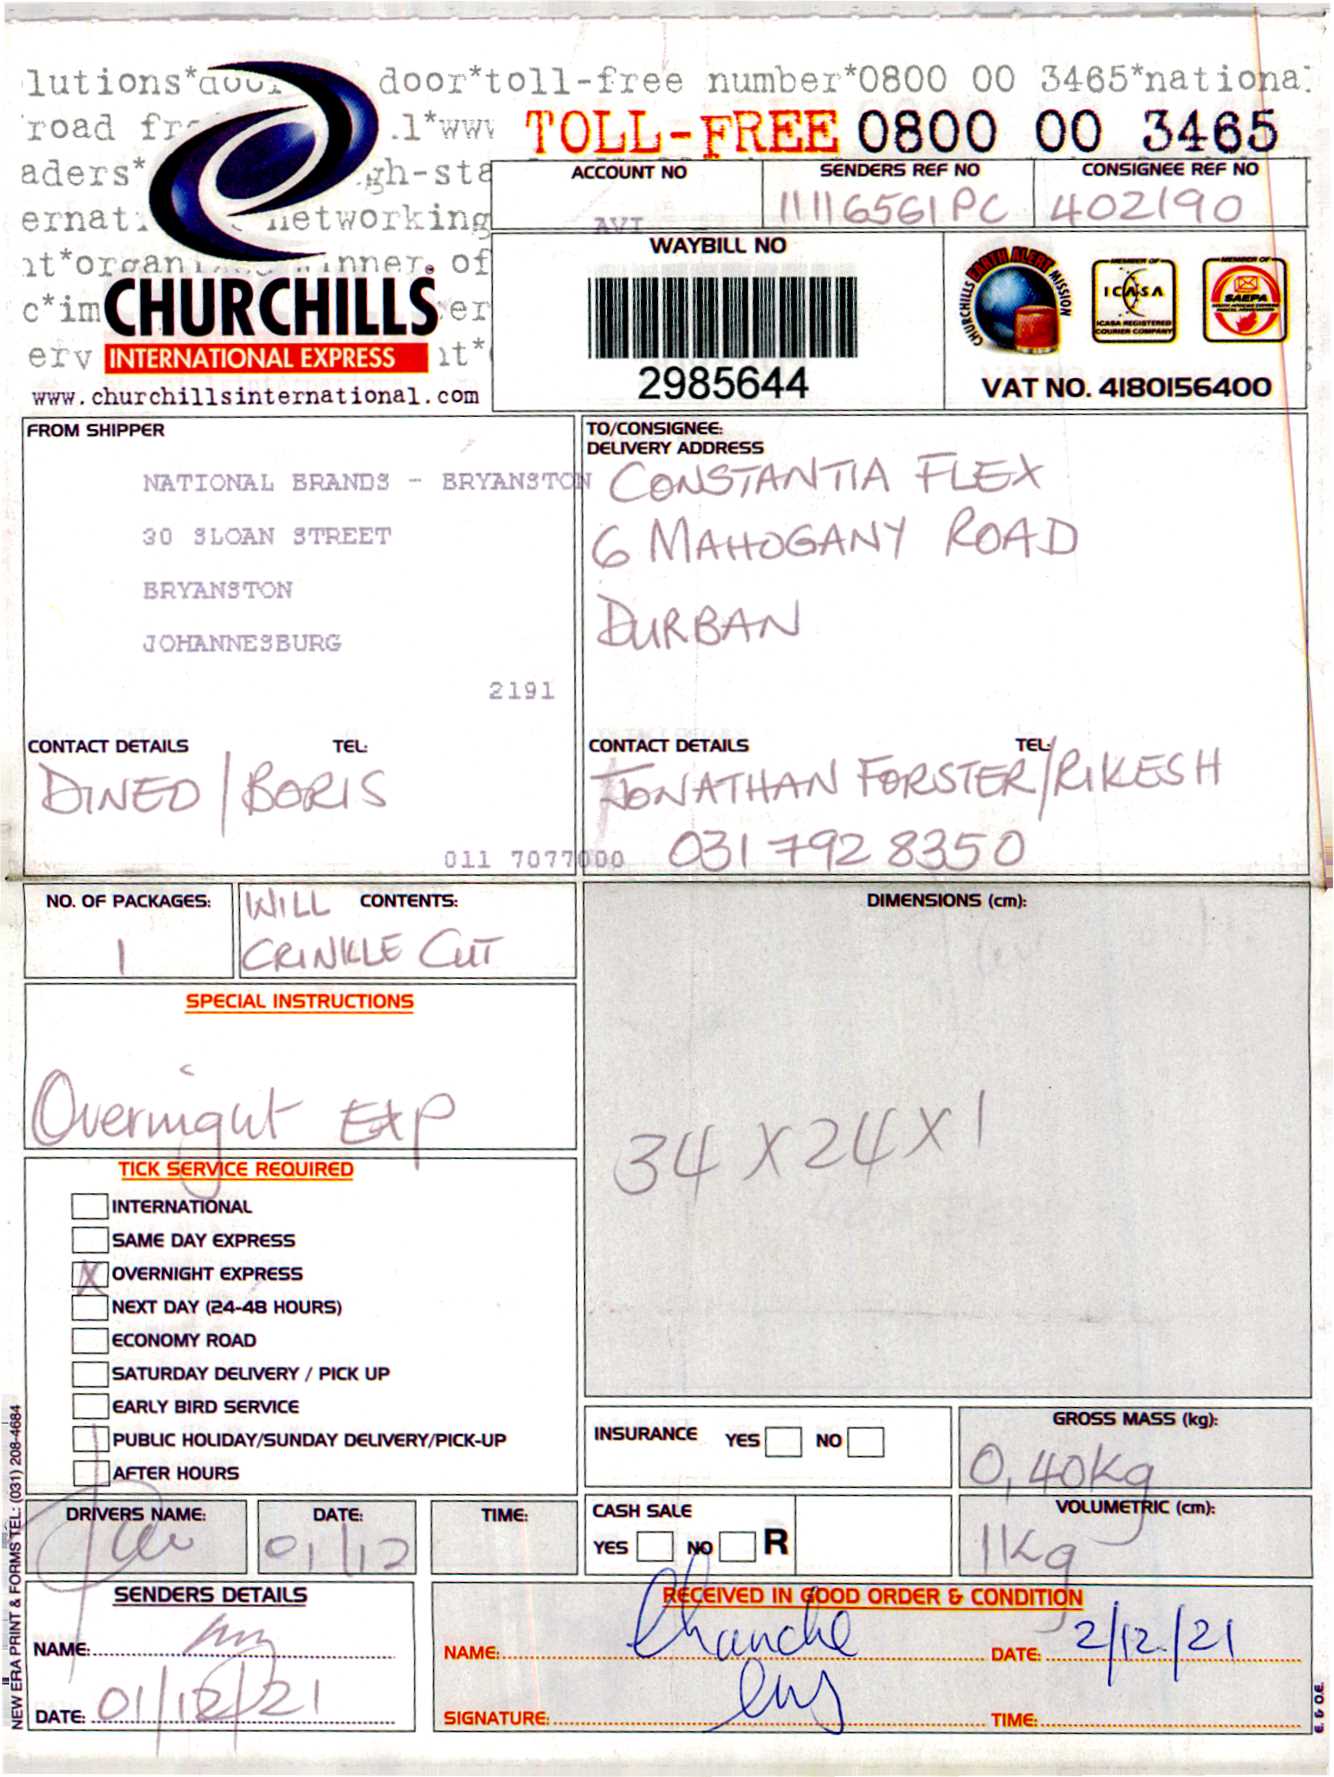 lutions*door door*toll-free number*0800 00 3465*national
road fr .l*www TOLL-FREE 0800 00 3465
aders* gh-sta
ernati networking
nt*organi winner. of
c*im CHURCHILLS er
erv INTERNATIONAL EXPRESS it*
www.churchillsinternational.com
ACCOUNT NO
AVI
SENDERS REF NO
11116561PC
CONSIGNEE REF NO
402190
WAYBILL NO
2985644
CHURCHILLS EARTH ALERT MISSION
MEMBER OF
ICASA
ICASA REGISTERED
COURIER COMPANY
MEMBER OF
SAEPA
VAT NO. 4180156400
FROM SHIPPER
NATIONAL BRANDS - BRYANSTON
30 SLOAN STREET
BRYANSTON
JOHANNESBURG
2191
CONTACT DETAILS TEL:
DINEO/BORIS
011 7077000
TO/CONSIGNEE:
DELIVERY ADDRESS
CONSTANTIA FLEX
6 MAHOGANY ROAD
DURBAN
CONTACT DETAILS TEL:
JONATHAN FORSTER/RIKESH
031 792 8350
NO. OF PACKAGES:
1
CONTENTS:
WILL
CRINKLE CUT
DIMENSIONS (cm):
34 X 24 X 1
SPECIAL INSTRUCTIONS
Overnight Exp
TICK SERVICE REQUIRED
INTERNATIONAL
SAME DAY EXPRESS
X OVERNIGHT EXPRESS
NEXT DAY (24-48 HOURS)
ECONOMY ROAD
SATURDAY DELIVERY / PICK UP
EARLY BIRD SERVICE
PUBLIC HOLIDAY/SUNDAY DELIVERY/PICK-UP
AFTER HOURS
INSURANCE YES NO
GROSS MASS (kg):
0,40kg
DRIVERS NAME:
DATE:
01/12
TIME:
CASH SALE
YES NO R
VOLUMETRIC (cm):
1kg
SENDERS DETAILS
NAME:
DATE: 01/12/21
RECEIVED IN GOOD ORDER & CONDITION
NAME: DATE: 2/12/21
SIGNATURE: TIME:
NEW ERA PRINT & FORMS TEL: (031) 208-4684
E. & O.E.